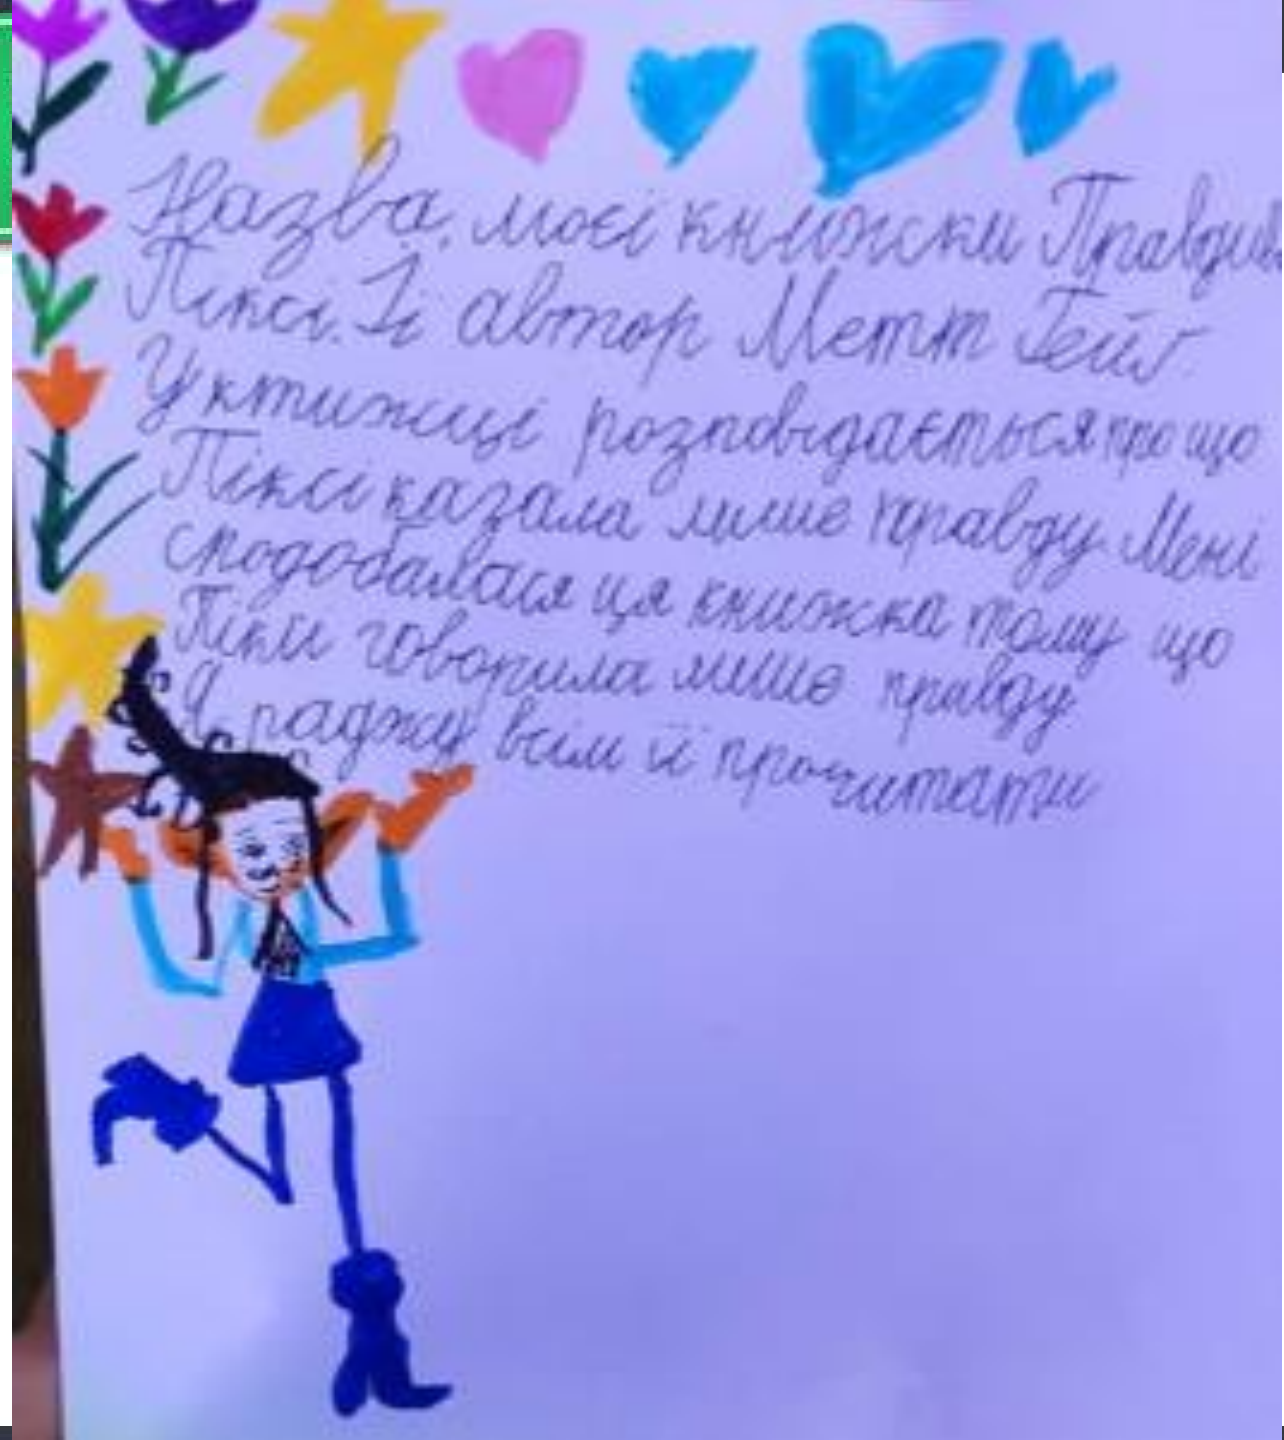 Назва моєї книжски Правдива
Піксі. Її автор Метт Гейґ
У ктижці розповідається про що
Піксі казала лише правду. Мені
сподобалася ця книжка тому що
Піксі говорила лише правду
Я раджу всім її прочитати